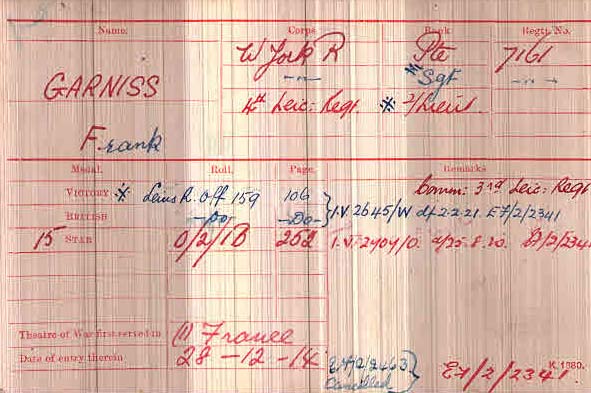 Name. Corps Rank Regtl. No.
W York R Pte 7161
GARNISS —"— * Sgt —"—
4th Leic: Regt. * 2/Lieut.
Frank
Medal. Roll. Page. Remarks
Comm: 3rd Leic: Regt
VICTORY * Leics R. Off 159 106
BRITISH —Do— —Do— } I.V. 2645/W d/ 2.2.21. E7/2/2341
15 STAR O/2/1B 252 I.V. 2404/O. d/25.8.20. E7/2/2341
Theatre of War first served in (1) France
Date of entry therein 28 - 12 - 14
Cancelled } E7/2/2341.
K. 1380.